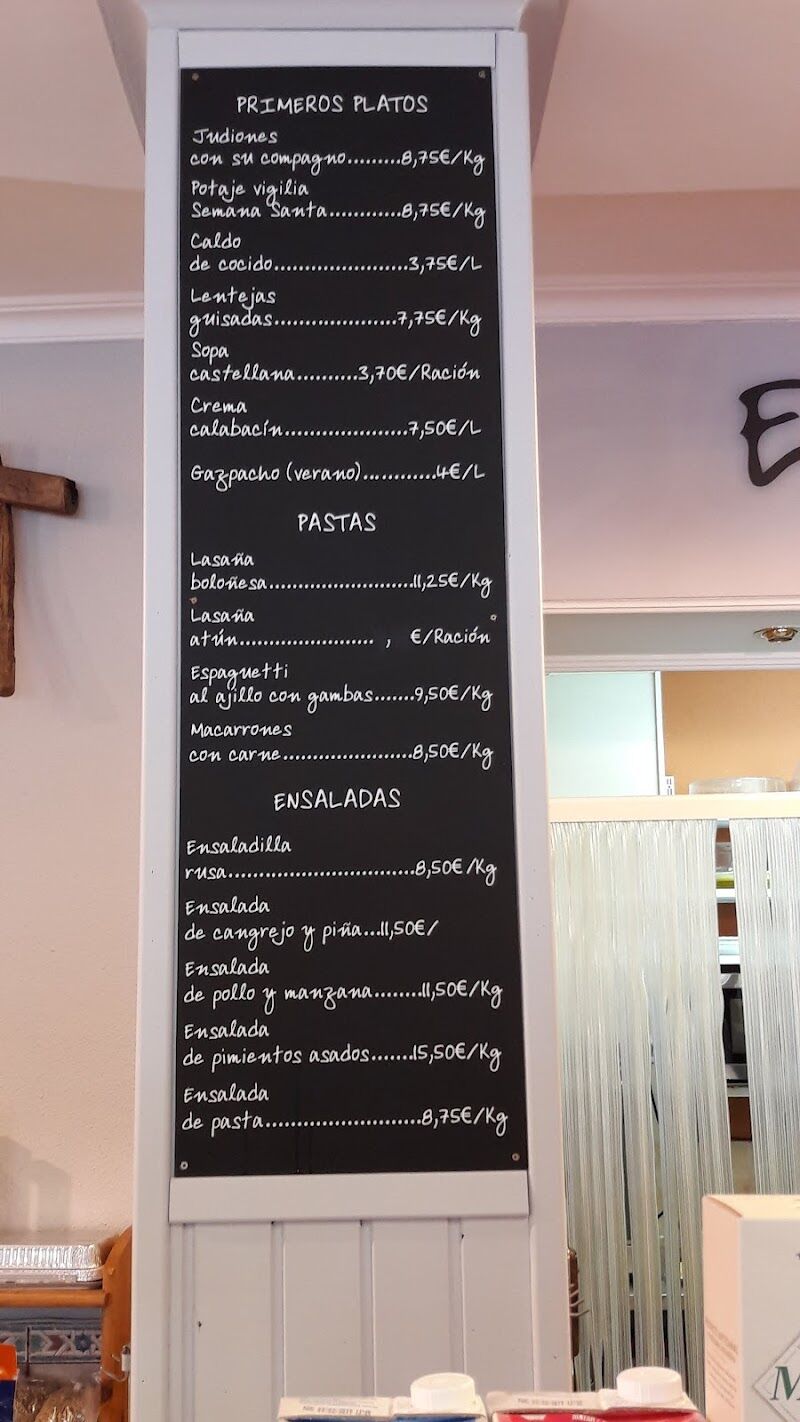 PRIMEROS PLATOS
Judiones
con su compagno.........8,75€/Kg
Potaje vigilia
Semana Santa............8,75€/Kg
Caldo
de cocido......................3,75€/L
Lentejas
guisadas....................7,75€/Kg
Sopa
castellana..........3,70€/Ración
Crema
calabacín....................7,50€/L
Gazpacho (verano)............4€/L
PASTAS
Lasaña
boloñesa........................11,25€/Kg
Lasaña
atún...................... , €/Ración
Espaguetti
al ajillo con gambas.......9,50€/Kg
Macarrones
con carne.....................8,50€/Kg
ENSALADAS
Ensaladilla
rusa...............................8,50€/Kg
Ensalada
de cangrejo y piña...11,50€/
Ensalada
de pollo y manzana........11,50€/Kg
Ensalada
de pimientos asados.......15,50€/Kg
Ensalada
de pasta..........................8,75€/Kg
E
M